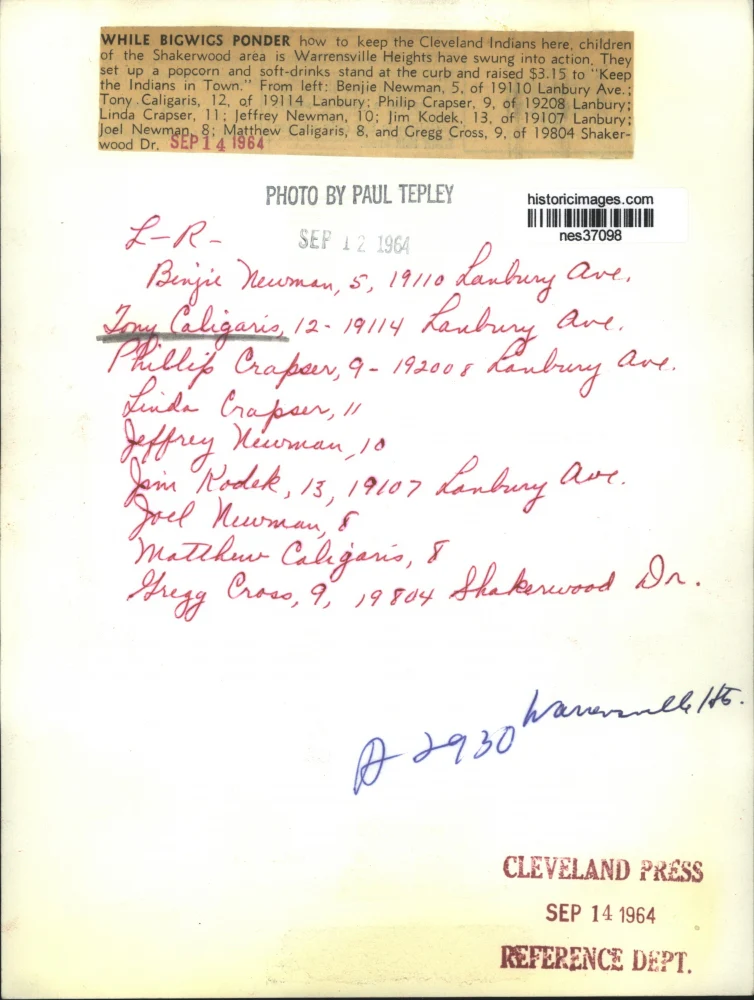 WHILE BIGWIGS PONDER how to keep the Cleveland Indians here, children
of the Shakerwood area is Warrensville Heights have swung into action. They
set up a popcorn and soft-drinks stand at the curb and raised $3.15 to "Keep
the Indians in Town." From left: Benjie Newman, 5, of 19110 Lanbury Ave.;
Tony Caligaris, 12, of 19114 Lanbury; Philip Crapser, 9, of 19208 Lanbury;
Linda Crapser, 11; Jeffrey Newman, 10; Jim Kodek, 13, of 19107 Lanbury;
Joel Newman, 8; Matthew Caligaris, 8, and Gregg Cross, 9, of 19804 Shaker-
wood Dr. SEP 14 1964
PHOTO BY PAUL TEPLEY
historicimages.com
nes37098
SEP 12 1964
L-R-
Benjie Newman, 5, 19110 Lanbury Ave.
Tony Caligaris, 12- 19114 Lanbury Ave.
Phillip Crapser, 9- 192008 Lanbury Ave.
Linda Crapser, 11
Jeffrey Newman, 10
Jim Kodek, 13, 19107 Lanbury Ave.
Joel Newman, 8
Matthew Caligaris, 8
Gregg Cross, 9, 19804 Shakerwood Dr.
Warrensville Hts.
A 2930
CLEVELAND PRESS
SEP 14 1964
REFERENCE DEPT.